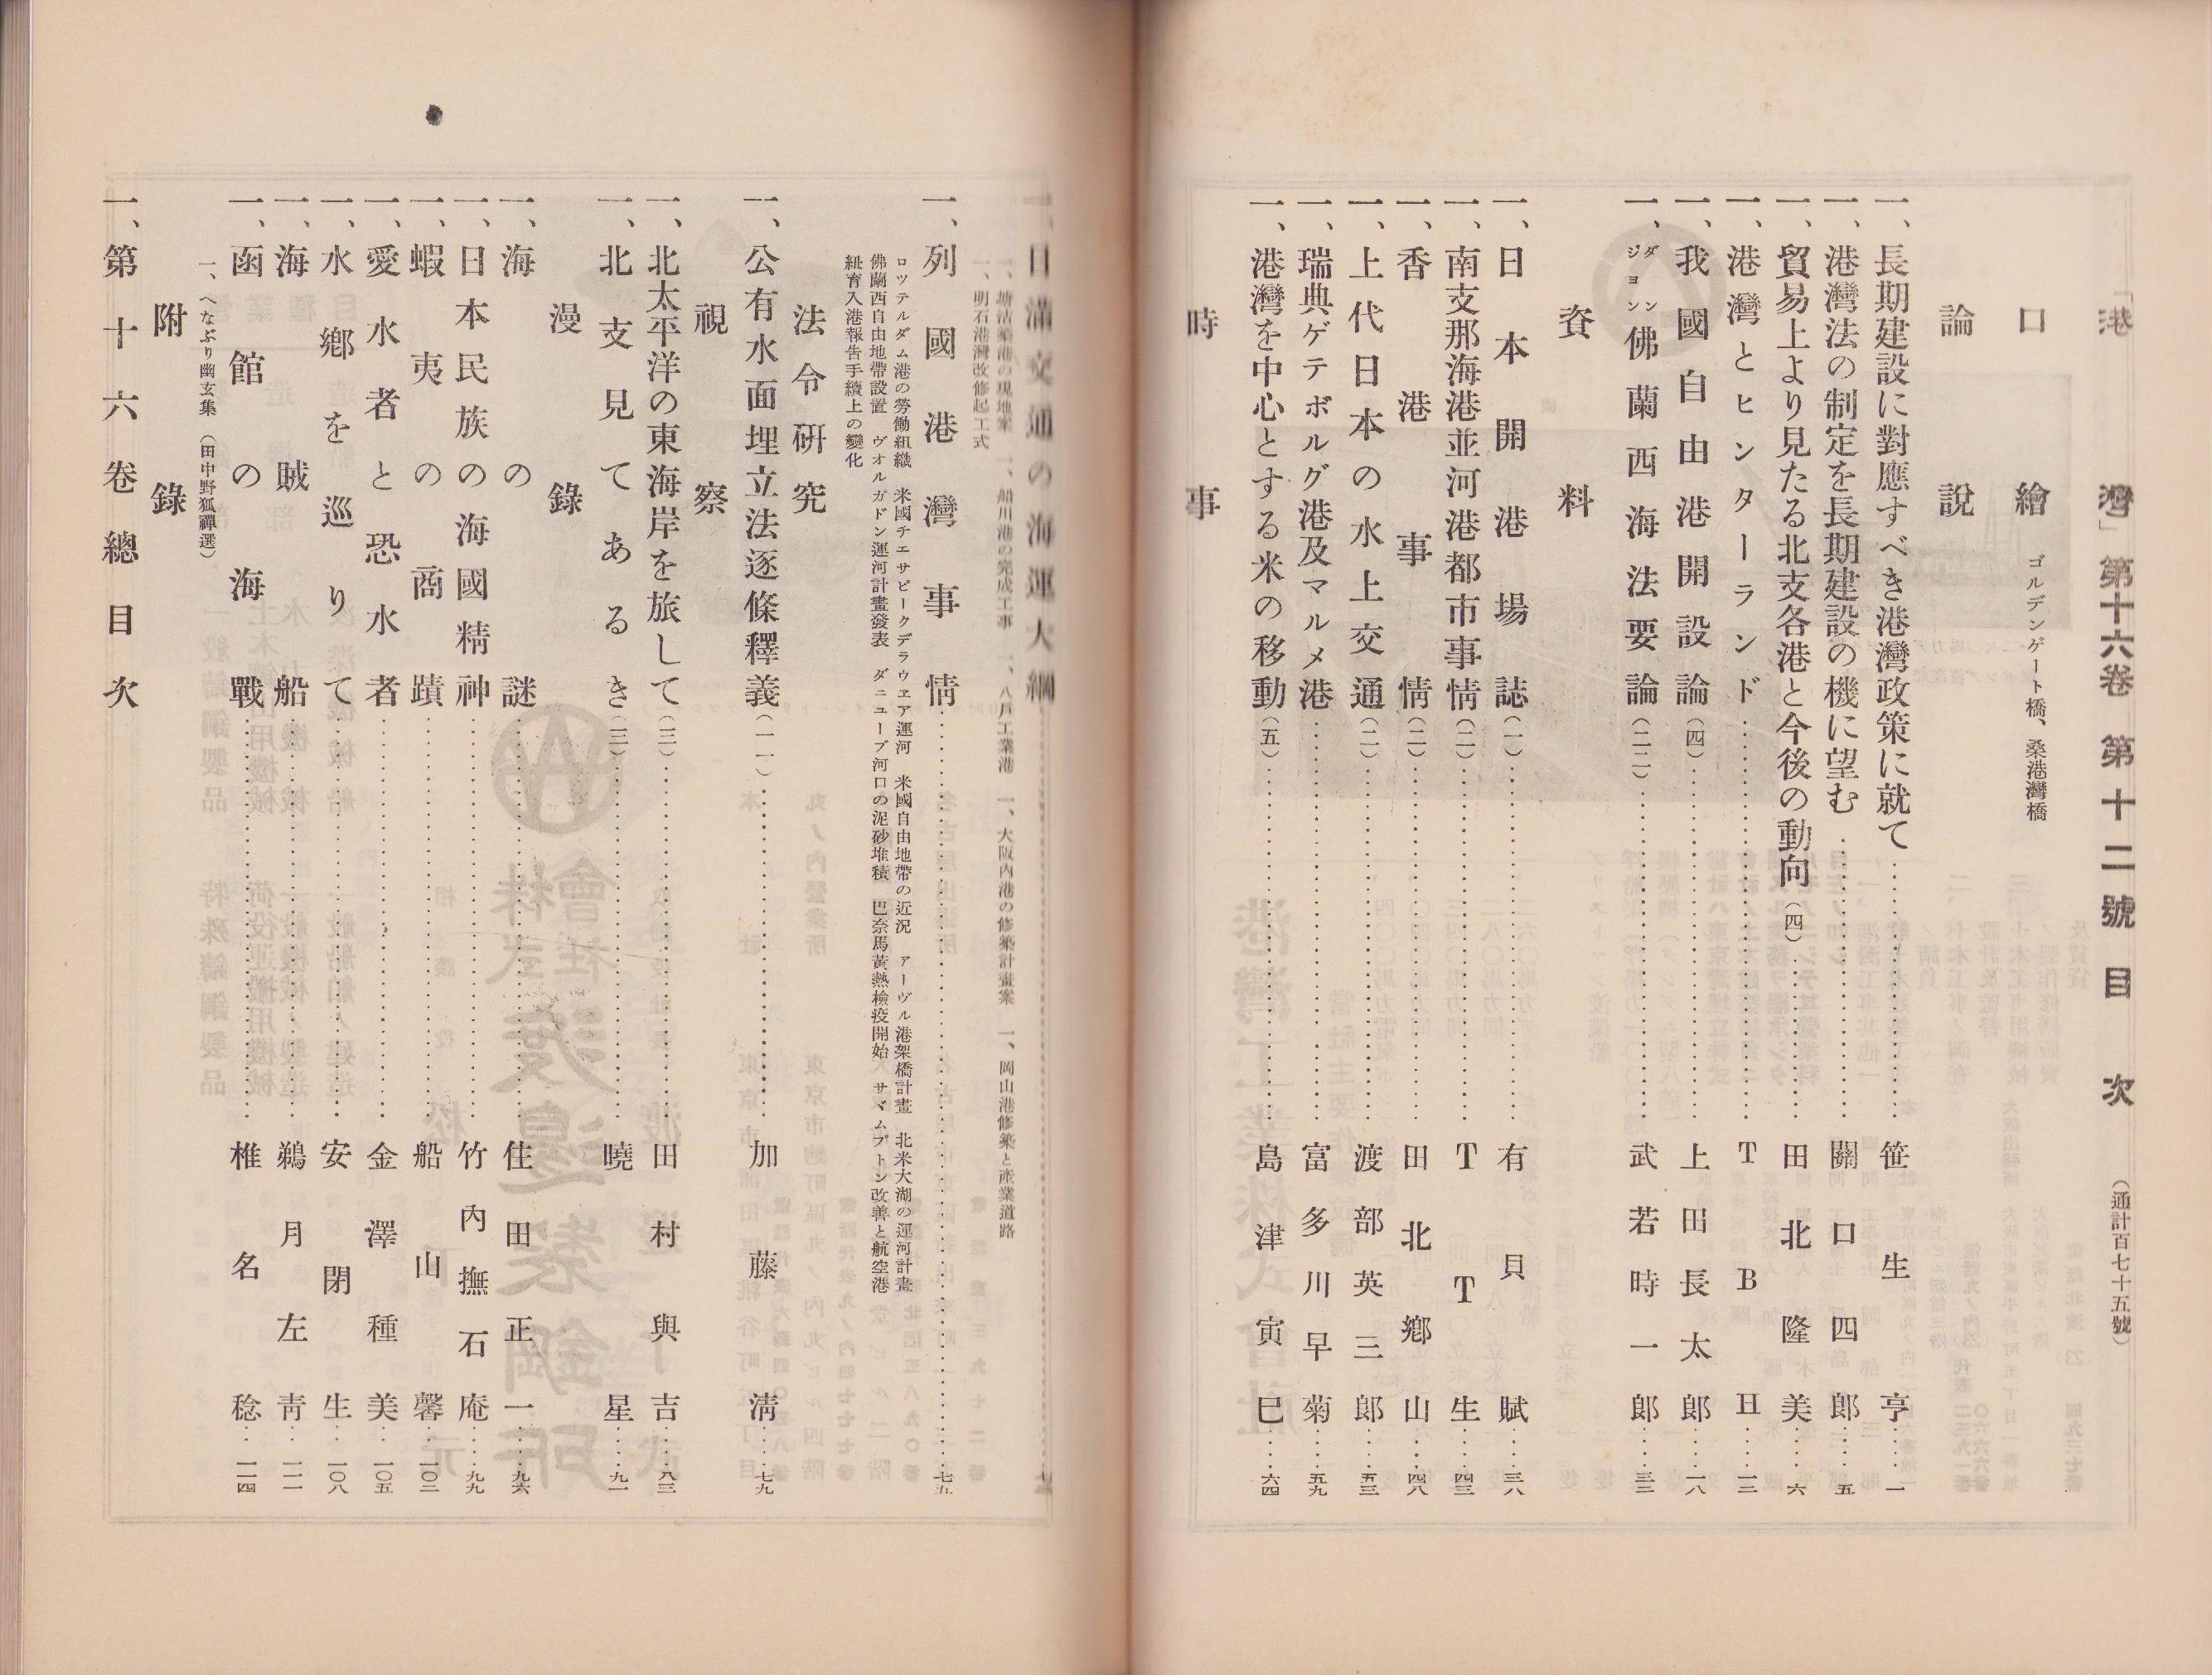 「港灣」第十六卷 第十二號 目次 (通計百七十五號)
口繪 ゴルデンゲート橋、桑港灣橋
論説
一、長期建設に對應すべき港灣政策に就て……笹生亨……一
一、港灣法の制定を長期建設の機に望む……關口四郎……五
一、貿易上より見たる北支各港と今後の動向(四)……田北隆美……六
一、港灣とヒンターランド……TBH……一二
一、我國自由港開設論(四)……上田長太郎……一八
一、ダンジョン佛蘭西海法要論(二二)……武若時一郎……三二
資料
一、日本開港場誌(一)……有貝賦……三八
一、南支那海港並河港都市事情(二)……TT生……四三
一、香港事情(二)……田北郷山……四八
一、上代日本の水上交通(二)……渡部英三郎……五三
一、瑞典ゲテボルグ港及マルメ港……富多川早菊……五九
一、港灣を中心とする米の移動(五)……島津寅巳……六四
時事
一、日滿交通の海運大綱
一、塘沽築港の現地案 一、船川港の完成工事 一、八戸工業港 一、大阪内港の修築計畫案 一、岡山港修築と産業道路
一、明石港灣改修起工式
一、列國港灣事情……七五
ロツテルダム港の勞働組織 米國チエサピークデラウエア運河 米國自由地帶の近況 アーヴル港架橋計畫 北米大湖の運河計畫
佛蘭西自由地帶設置 ヴオルガドン運河計畫發表 ダニユーブ河口の泥砂堆積 巴奈馬黃熱檢疫開始 サヾムプトン改善と航空港
紐育入港報告手續上の變化
法令研究
一、公有水面埋立法逐條釋義(一一)……加藤淸……七九
視察
一、北太平洋の東海岸を旅して(三)……田村與吉……八三
一、北支見てあるき(三)……曉星……九一
漫錄
一、海の謎……住田正一……九六
一、日本民族の海國精神……竹內撫石庵……九九
一、蝦夷の商蹟……船山馨……一〇二
一、愛水者と恐水者……金澤種美……一〇五
一、水鄕を巡りて……安閉生……一〇八
一、海賊船……鵜月左靑……一一一
一、函館の海戰……椎名稔……一一四
一、へなぶり幽玄集 (田中野狐禪選)
附錄
一、第十六卷總目次